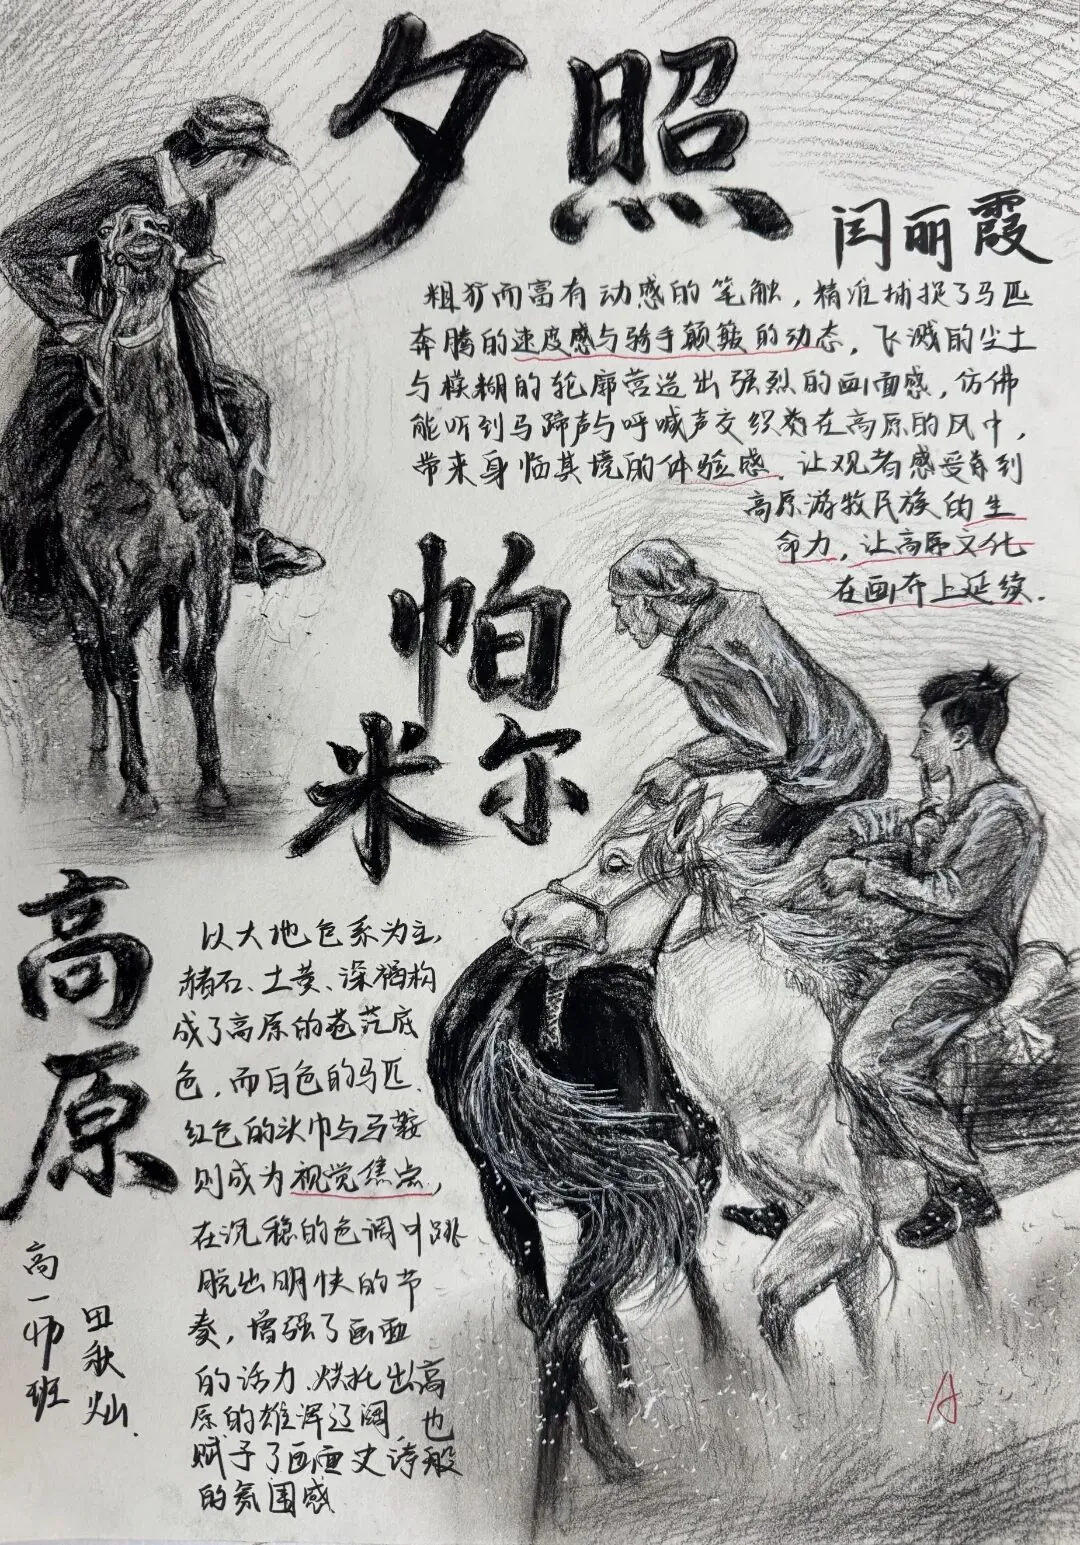 夕照
闫丽霞
粗犷而富有动感的笔触，精准捕捉了马匹
奔腾的速度感与骑手颠簸的动态，飞溅的尘土
与模糊的轮廓营造出强烈的画面感，仿佛
能听到马蹄声与呼喊声交织着在高原的风中，
带来身临其境的体验感．让观者感受到
高原游牧民族的生
命力，让高原文化
在画布上延续．
帕
米尔
高原
以大地色系为主，
赭石、土黄、深褐构
成了高原的苍茫底
色，而白色的马匹．
红色的头巾与马鞍
则成为视觉焦点，
在沉稳的色调中跳
脱出明快的节
奏，增强了画面
的活力．烘托出高
原的雄浑辽阔，也
赋予了画面史诗般
的氛围感
高一师班
田秋灿．
A